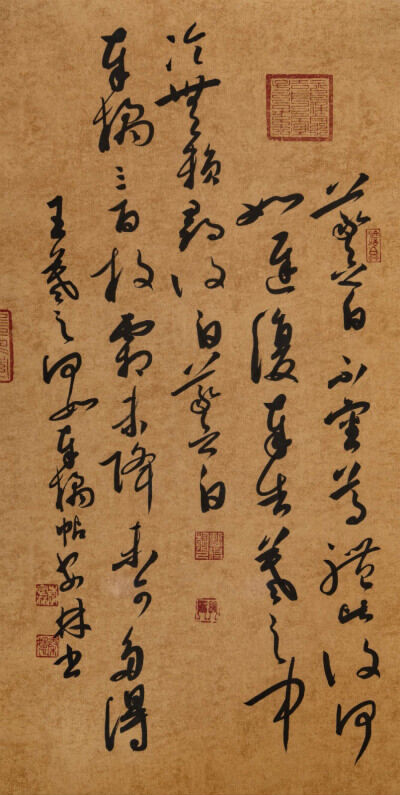 羲之白不審尊體比復何
如遲復奉告羲之中
冷無賴尋復白羲之白
奉橘三百枚霜未降未可多得
王羲之何如奉橘帖 林书